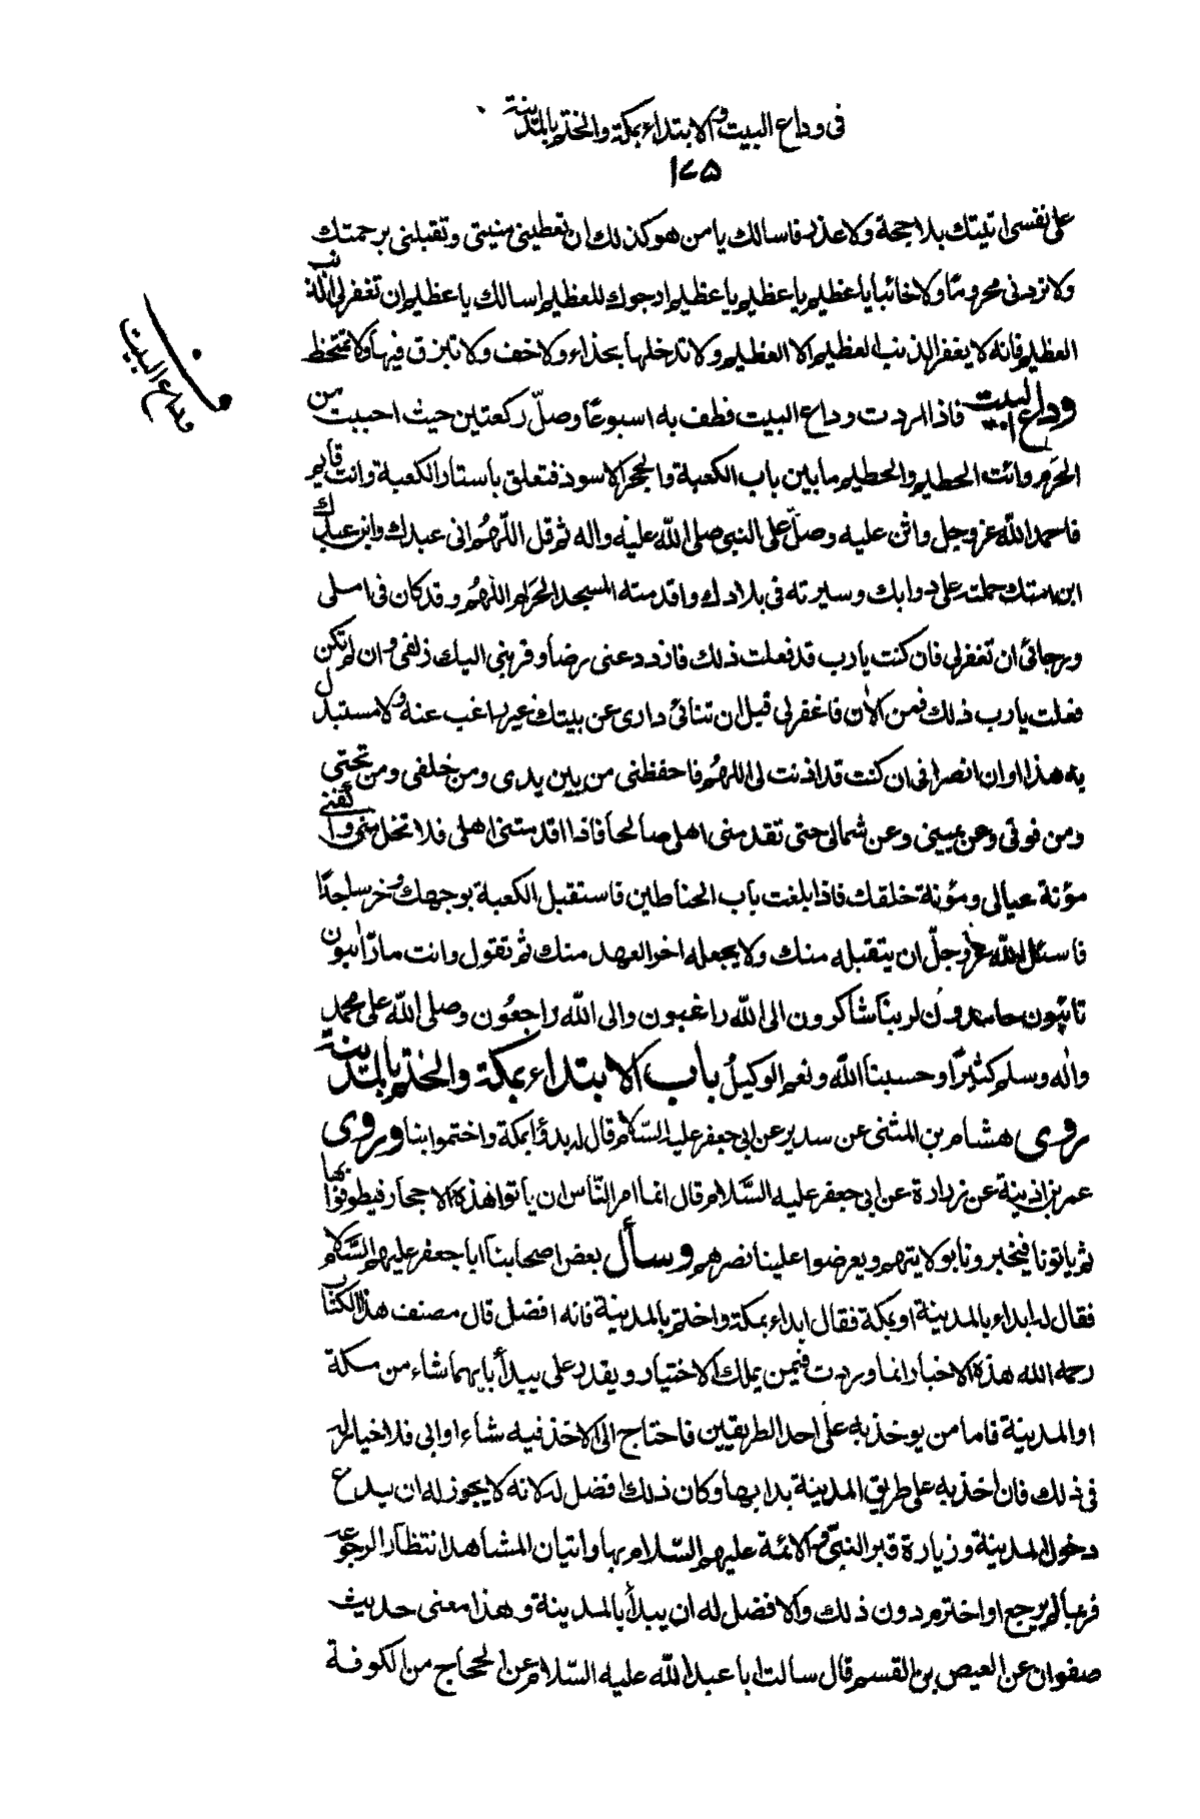 في وداع البيت والابتداء بمكة والختم بالمدينة
١٧٥
على نفسي اتيتك بلا حجة ولا عذر فاسالك يا من هو كذلك ان تعطيني منيتي وتقبلني برحمتك
ولا تردني محروما ولا خائبا يا عظيم يا عظيم يا عظيم ارجوك للعظيم اسالك يا عظيم ان تغفر لي الذنب
العظيم فانه لا يغفر الذنب العظيم الا العظيم ولا تدخلها بحذاء ولا خف ولا تبزق فيها ولا تمتخط
وداع البيت فاذا اردت وداع البيت فطف به اسبوعا وصلّ ركعتين حيث احببت من
الحرم وائت الحطيم والحطيم ما بين باب الكعبة والحجر الاسود فتعلق باستار الكعبة وانت قايم
فاحمد الله عز وجل واثن عليه وصلّ على النبي صلى الله عليه واله ثم قل اللّهم اني عبدك وابن عبدك
ابن امتك حملته على دوابك وسيرته في بلادك واقدمته المسجد الحرام اللهم وقد كان في املي
ورجائي ان تغفر لي فان كنت يا رب قد فعلت ذلك فازدد عني رضا وقربني اليك زلفى وان لم تكن
فعلت يا رب ذلك فمن الان فاغفر لي قبل ان تنائ داري عن بيتك غير راغب عنه ولا مستبدل
به هذا اوان انصرافي ان كنت قد اذنت لي اللهم فاحفظني من بين يدي ومن خلفي ومن تحتي
ومن فوقي وعن يميني وعن شمالي حتى تقدمني اهلي صالحا فاذا اقدمتني اهلي فلا تخل مني واكفني
مؤنة عيالي ومؤنة خلقك فاذا بلغت باب الحناطين فاستقبل الكعبة بوجهك وخر ساجدا
فاسئل الله عز وجلّ ان يتقبله منك ولا يجعله اخر العهد منك ثم تقول وانت مارّ ائبون
تائبون حامدون لربنا شاكرون الى الله راغبون والى الله راجعون وصلى الله على محمد
واله وسلم كثيرا وحسبنا الله ونعم الوكيل باب الابتداء بمكة والختم بالمدينة
روى هشام بن المثنى عن سدير عن ابي جعفر عليه السّلام قال له ابدؤا بمكة واختموا بنا وروى
عمر بن اذينة عن زرارة عن ابي جعفر عليه السّلام قال انما امر النّاس ان ياتوا هذه الاحجار فيطوفوا بها
ثم ياتونا فيخبرونا بولايتهم ويعرضوا علينا نصرهم وسأل بعض اصحابنا ابا جعفر عليهم السّلام
فقال له ابداء بالمدينة او بمكة فقال ابداء بمكة واختم بالمدينة فانه افضل قال مصنف هذا الكتاب
رحمه الله هذه الاخبار انما وردت فيمن يملك الاختيار ويقدر على يبدأ بايهما شاء من مكة
او المدينة فاما من يوخذ به على احد الطريقين فاحتاج الى الاخذ فيه شاء او ابى فلا خيار له
في ذلك فان اخذ به على طريق المدينة بدا بها وكان ذلك افضل له لانه لا يجوز له ان يدع
دخول المدينة وزيارة قبر النبيّ والائمة عليهم السّلام بها واتيان المشاهد انتظار الرجوع
فربما لم يرجع او اخترم دون ذلك والافضل له ان يبدأ بالمدينة وهذا معنى حديث
صفوان عن العيص بن القسم قال سالت ابا عبد الله عليه السّلام عن الحجاج من الكوفة
وداع البيت